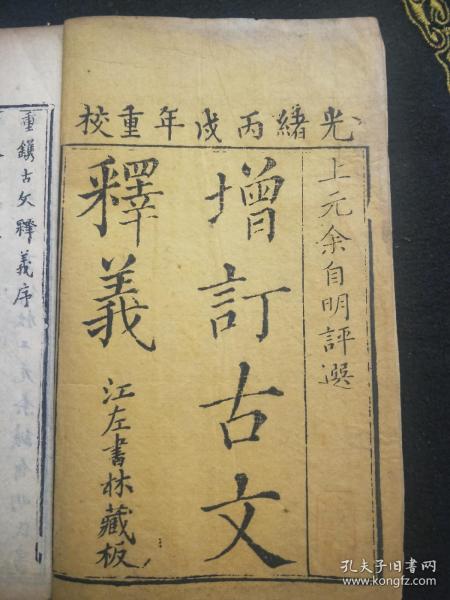 光緒丙戌年重校
上元余自明評選
增訂古文
釋義
江左書林藏板
重鐫古文釋義序
孔夫子旧书网
www.kongfz.com